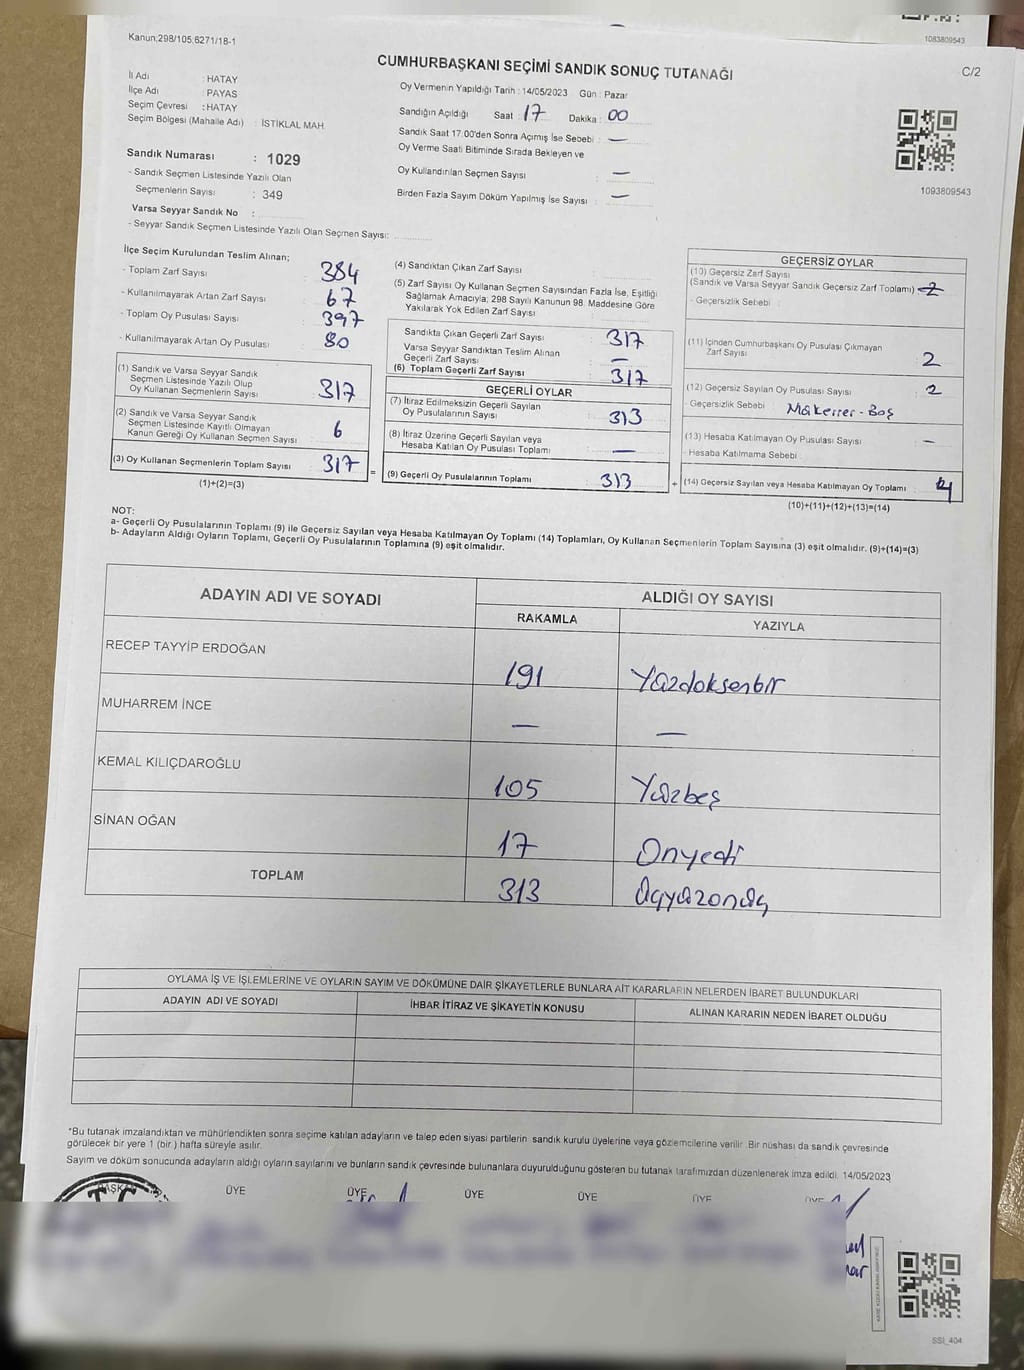 1083809543
Kanun;298/105;6271/18-1
C/2
CUMHURBAŞKANI SEÇİMİ SANDIK SONUÇ TUTANAĞI
İl Adı : HATAY
İlçe Adı : PAYAS
Seçim Çevresi : HATAY
Seçim Bölgesi (Mahalle Adı) : İSTİKLAL MAH.
Oy Vermenin Yapıldığı Tarih : 14/05/2023 Gün : Pazar
Sandığın Açıldığı Saat : 17 Dakika : 00
Sandık Saat 17:00'den Sonra Açımış İse Sebebi : —
Oy Verme Saati Bitiminde Sırada Bekleyen ve
Oy Kullandırılan Seçmen Sayısı : —
Birden Fazla Sayım Döküm Yapılmış İse Sayısı : —
1093809543
Sandık Numarası : 1029
- Sandık Seçmen Listesinde Yazılı Olan
Seçmenlerin Sayısı : 349
Varsa Seyyar Sandık No :
- Seyyar Sandık Seçmen Listesinde Yazılı Olan Seçmen Sayısı:
İlçe Seçim Kurulundan Teslim Alınan;
- Toplam Zarf Sayısı : 384
- Kullanılmayarak Artan Zarf Sayısı : 67
- Toplam Oy Pusulası Sayısı : 397
- Kullanılmayarak Artan Oy Pusulası : 80
(1) Sandık ve Varsa Seyyar Sandık
Seçmen Listesinde Yazılı Olup
Oy Kullanan Seçmenlerin Sayısı : 317
(2) Sandık ve Varsa Seyyar Sandık
Seçmen Listesinde Kayıtlı Olmayan
Kanun Gereği Oy Kullanan Seçmen Sayısı : 6
(3) Oy Kullanan Seçmenlerin Toplam Sayısı : 317
(1)+(2)=(3)
=
(4) Sandıktan Çıkan Zarf Sayısı :
(5) Zarf Sayısı Oy Kullanan Seçmen Sayısından Fazla İse, Eşitliği
Sağlamak Amacıyla; 298 Sayılı Kanunun 98. Maddesine Göre
Yakılarak Yok Edilen Zarf Sayısı :
Sandıkta Çıkan Geçerli Zarf Sayısı : 317
Varsa Seyyar Sandıktan Teslim Alınan
Geçerli Zarf Sayısı : —
(6) Toplam Geçerli Zarf Sayısı : 317
GEÇERLİ OYLAR
(7) İtiraz Edilmeksizin Geçerli Sayılan
Oy Pusulalarının Sayısı : 313
(8) İtiraz Üzerine Geçerli Sayılan veya
Hesaba Katılan Oy Pusulası Toplamı : —
(9) Geçerli Oy Pusulalarının Toplamı : 313
+
GEÇERSİZ OYLAR
(10) Geçersiz Zarf Sayısı
(Sandık ve Varsa Seyyar Sandık Geçersiz Zarf Toplamı) : 2
- Geçersizlik Sebebi :
(11) İçinden Cumhurbaşkanı Oy Pusulası Çıkmayan
Zarf Sayısı : 2
(12) Geçersiz Sayılan Oy Pusulası Sayısı : 2
- Geçersizlik Sebebi : Mükerrer - Boş
(13) Hesaba Katılmayan Oy Pusulası Sayısı : —
- Hesaba Katılmama Sebebi :
(14) Geçersiz Sayılan veya Hesaba Katılmayan Oy Toplamı : 4
(10)+(11)+(12)+(13)=(14)
NOT:
a- Geçerli Oy Pusulalarının Toplamı (9) ile Geçersiz Sayılan veya Hesaba Katılmayan Oy Toplamı (14) Toplamları, Oy Kullanan Seçmenlerin Toplam Sayısına (3) eşit olmalıdır. (9)+(14)=(3)
b- Adayların Aldığı Oyların Toplamı, Geçerli Oy Pusulalarının Toplamına (9) eşit olmalıdır.
ADAYIN ADI VE SOYADI
ALDIĞI OY SAYISI
RAKAMLA YAZIYLA
RECEP TAYYİP ERDOĞAN 191 Yüzdoksanbir
MUHARREM İNCE — —
KEMAL KILIÇDAROĞLU 105 Yüzbeş
SİNAN OĞAN 17 Onyedi
TOPLAM 313 Üçyüzonüç
OYLAMA İŞ VE İŞLEMLERİNE VE OYLARIN SAYIM VE DÖKÜMÜNE DAİR ŞİKAYETLERLE BUNLARA AİT KARARLARIN NELERDEN İBARET BULUNDUKLARI
ADAYIN ADI VE SOYADI İHBAR İTİRAZ VE ŞİKAYETİN KONUSU ALINAN KARARIN NEDEN İBARET OLDUĞU
*Bu tutanak imzalandıktan ve mühürlendikten sonra seçime katılan adayların ve talep eden siyasi partilerin sandık kurulu üyelerine veya gözlemcilerine verilir. Bir nüshası da sandık çevresinde
görülecek bir yere 1 (bir ) hafta süreyle asılır.
Sayım ve döküm sonucunda adayların aldığı oyların sayılarını ve bunların sandık çevresinde bulunanlara duyurulduğunu gösteren bu tutanak tarafımızdan düzenlenerek imza edildi. 14/05/2023
BAŞKAN ÜYE ÜYE ÜYE ÜYE ÜYE ÜYE
SSİ_404